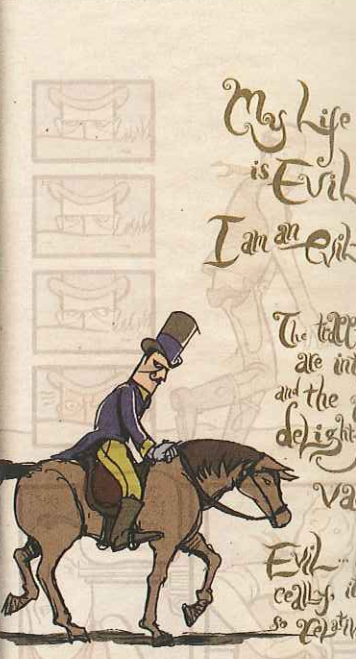 My Life
is Evil
I am an evil
The
are in
and the
delight
va
Evil...
really, i
so